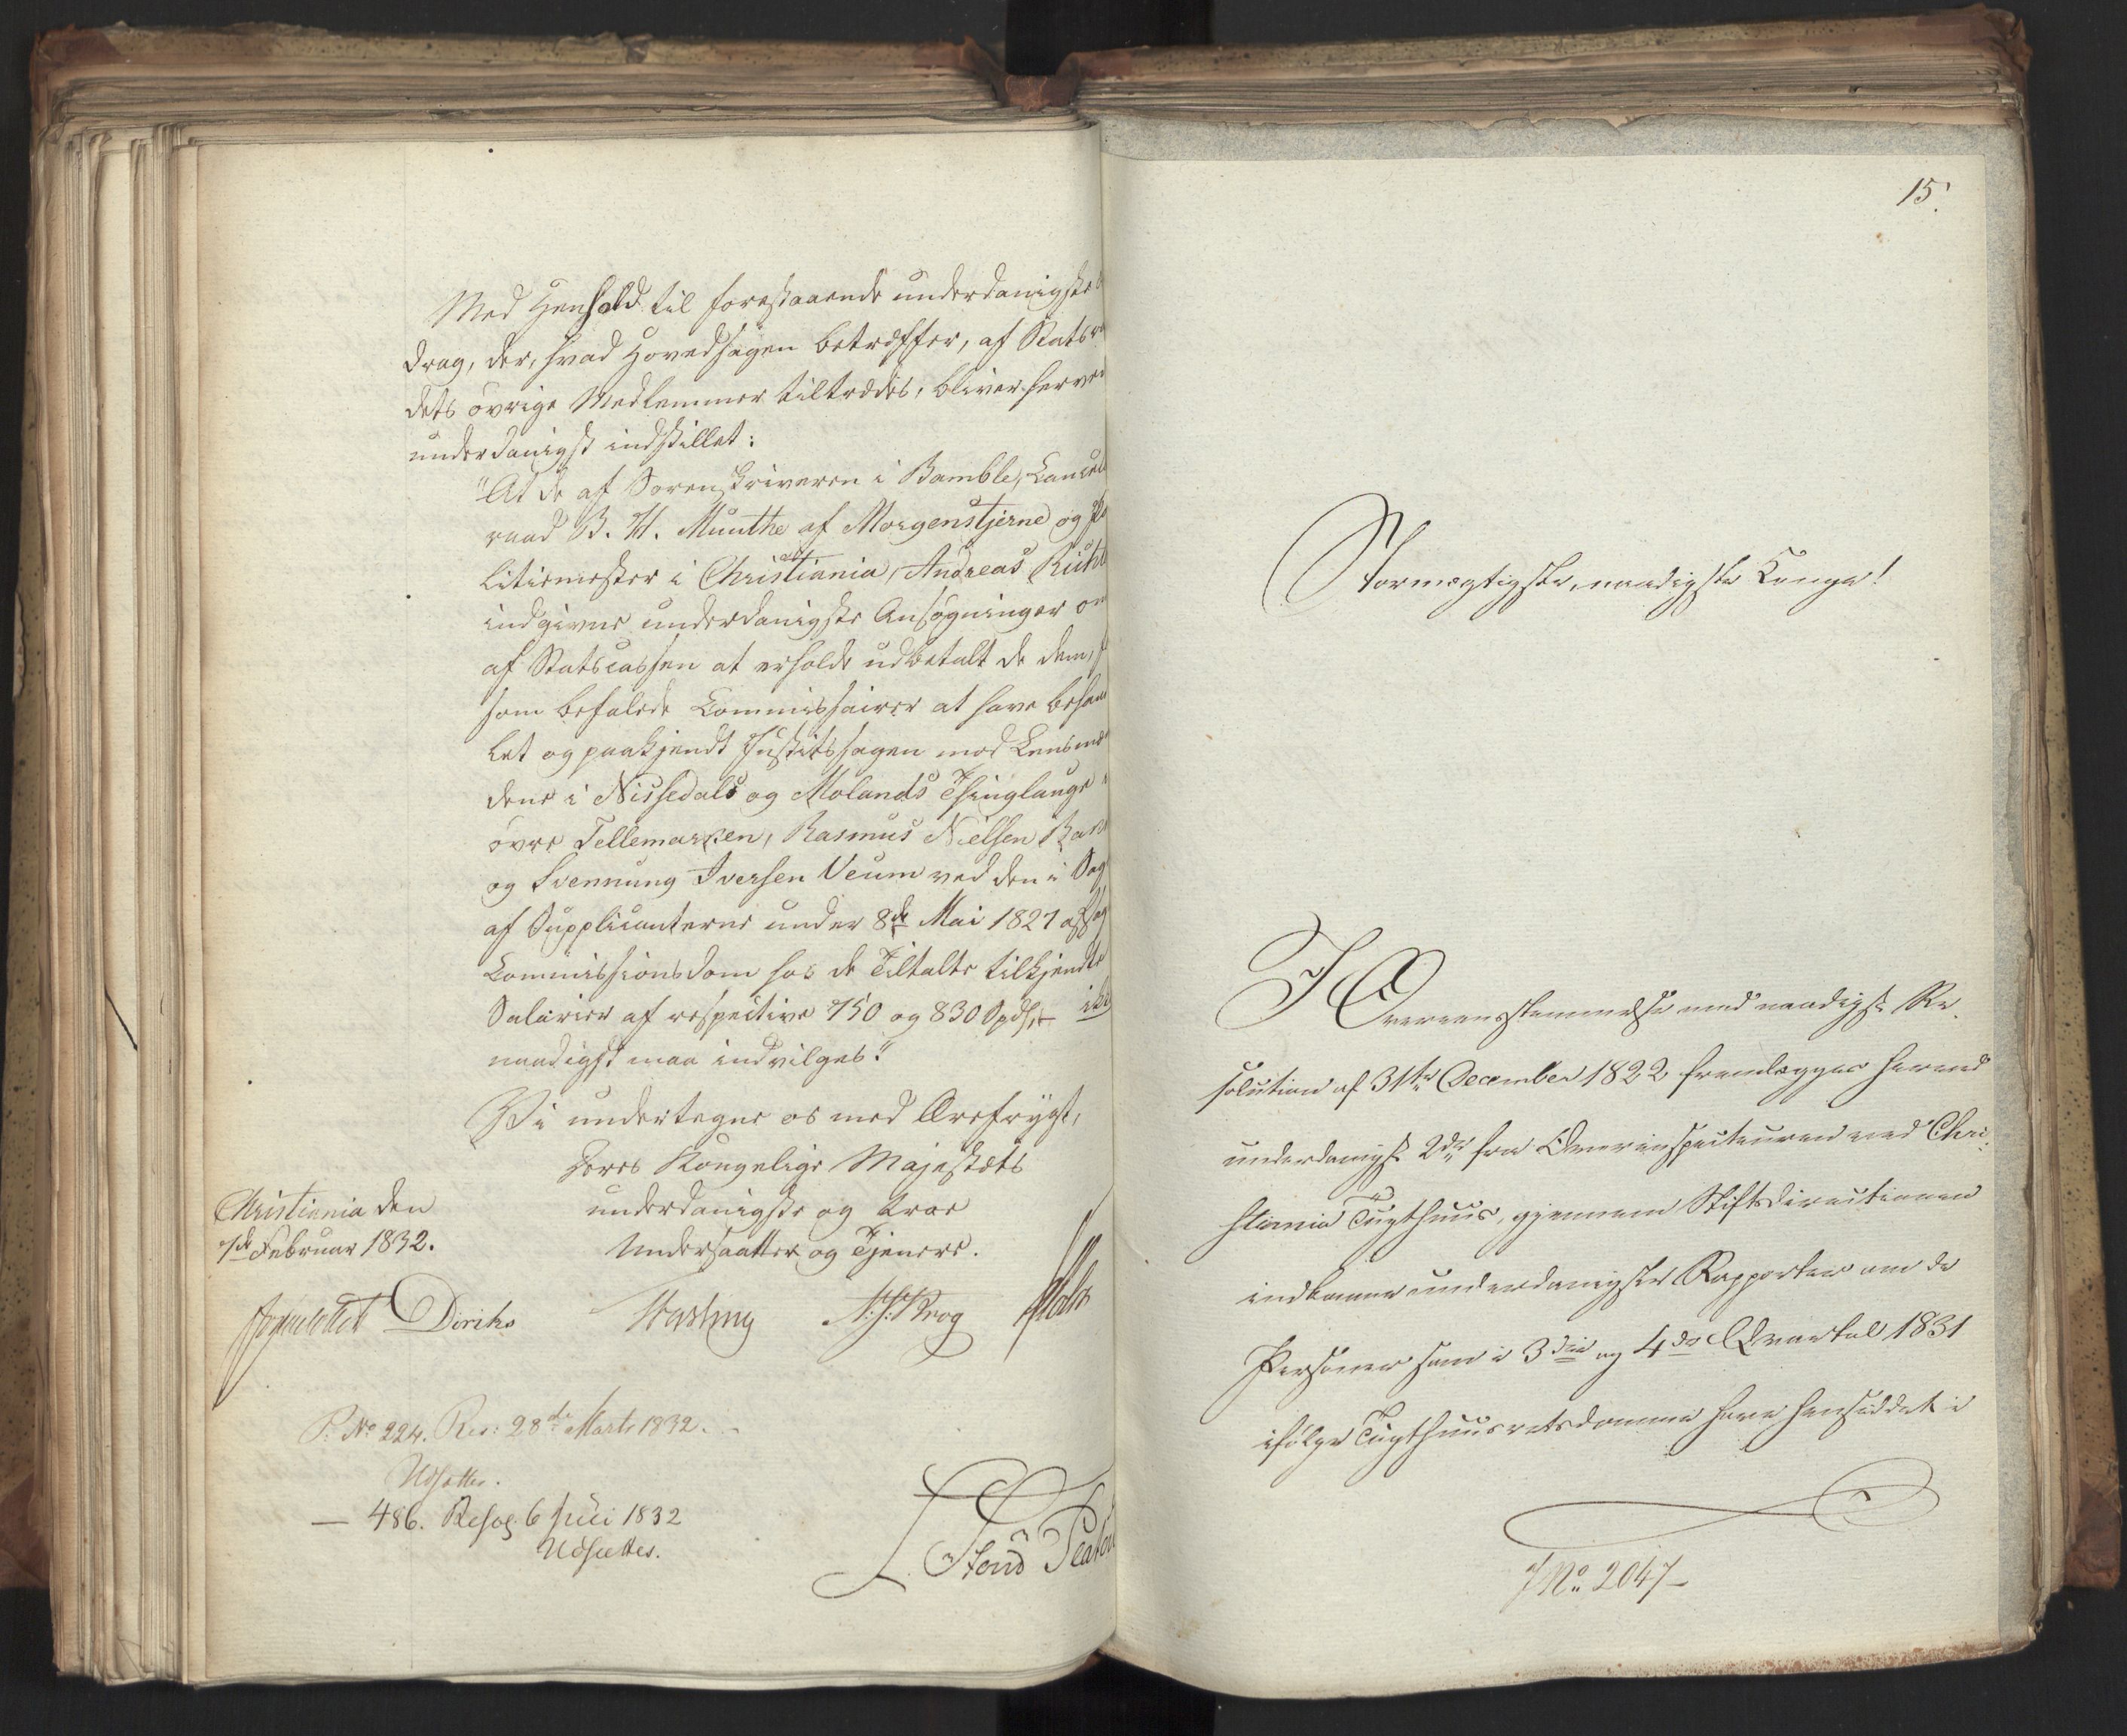 Med Henhold til foranstaaende underdanigste
drag, der, hvad Hovedsagen betræffer, af Statsr
dets øvrige Medlemmer tiltrædes, bliver herved
underdanigst indstillet:
"At de af Sorenskriveren i Bamble, Cancel
raad B. H. Munthe af Morgenstjerne og Po
litiemester i Christiania, Andreas Richt
indgivne underdanigste Ansøgninger om
af Statscassen at erholde udbetalt de dem,
som befalede Commissairer at have behand
let og paakjendt Justitssagen mod Lensmæn
dene i Nissedals og Molands Thinglauge i
øvre Tellemarken, Rasmus Nielsen
og Svennung Iversen Veum ved den i Sag
af Supplicanterne under 8de Mai 1827 afsag
Commissionsdom hos de Tiltalte tilkjendte
Salarier af respective 750 og 830 Spdlr ikke
naadigst maa indvilges."
Vi undertegne os med Ærefrygt,
Deres Kongelige Majestæts
underdanigste og troe
Undersaatter og Tjenere.
Christiania den
1de Februar 1832.
Diriks
N. J. Krog
P: No 224. Res: 28de Marts 1832.
Udsættes.
— 486. Resol. 6 Juli 1832
Udsættes.
15.
Stormægtigste, naadigste Konge!
I Overeensstemmelse med naadigst Re-
solution af 31te December 1822 fremlægges herved
underdanigst 2de fra Overinspecteuren ved Chri-
stiania Tugthuus, gjennem Stiftsdirectionen
indkomne underdanigste Rapporter om de
Personer som i 3die og 4de Qvartal 1831
ifølge Tugthuusretsdomme have hensiddet i
J No. 2047